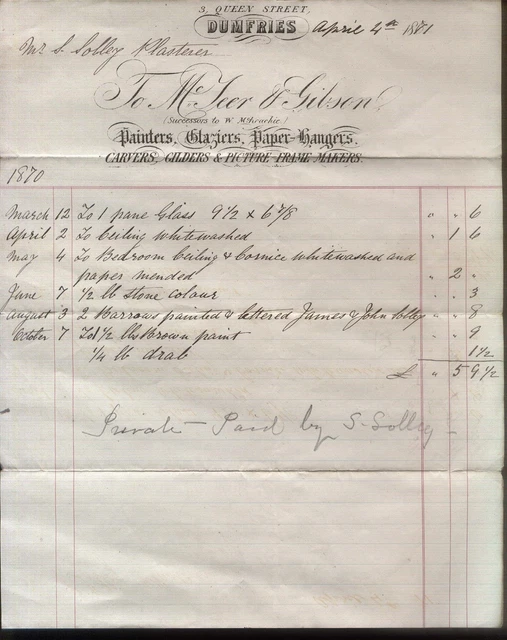 3, QUEEN STREET,
DUMFRIES April 4th 1871
Mr S. Solley Plasterer
To McJeor & Gibson,
(Successors to W. McKrackie)
Painters, Glaziers, Paper-Hangers,
CARVERS, GILDERS & PICTURE FRAME MAKERS.
1870
March 12 To 1 pane Glass 9 1/2 x 6 7/8 " " 6
April 2 To Ceiling whitewashed " 1 6
May 4 To Bedroom Ceiling & Cornice whitewashed and
paper mended " 2 "
June 7 1/2 lb Stone colour " " 3
August 3 2 Barrows painted & lettered James & John Solley " " 8
October 7 To 1 1/2 lbs Brown paint " " 9
1/4 lb drab 1 1/2
£ " 5 9 1/2
Private - Paid by S. Solley -